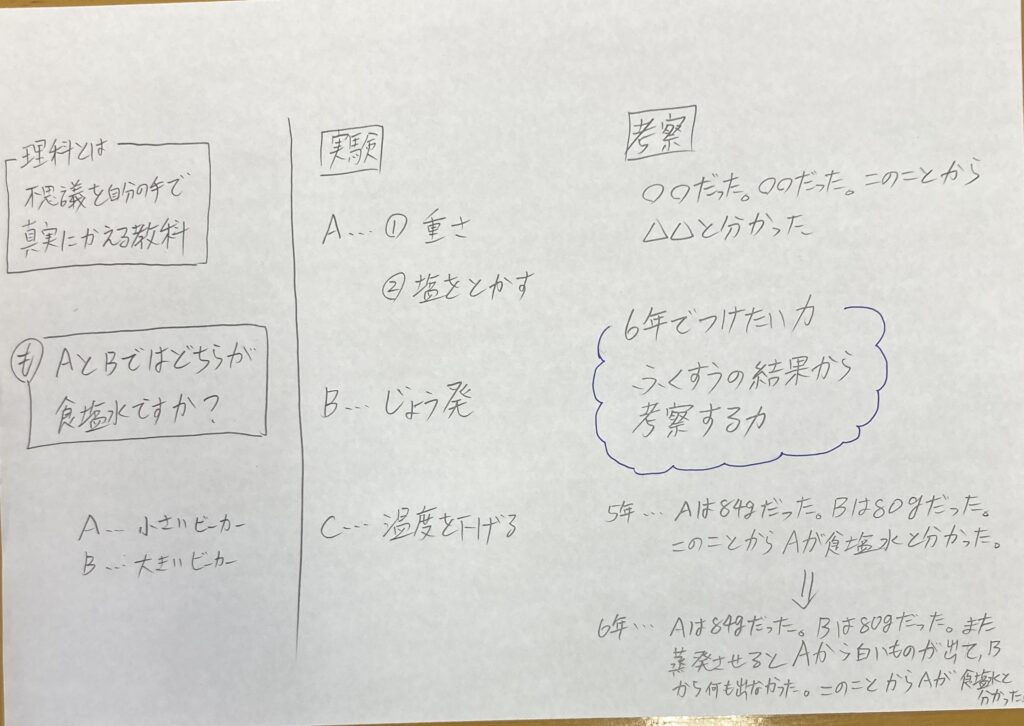 理科とは
不思議を自分の手で
真実にかえる教科
も AとBではどちらが
食塩水ですか？
A… 小さいビーカー
B… 大きいビーカー
実験
A… ① 重さ
② 塩をとかす
B… じょう発
C… 温度を下げる
考察
○○だった。○○だった。このことから
△△と分かった
6年でつけたい力
ふくすうの結果から
考察する力
5年… Aは84gだった。Bは80gだった。
このことからAが食塩水と分かった。
⇓
6年… Aは84gだった。Bは80gだった。また
蒸発させるとAから白いものが出て、B
から何も出なかった。このことからAが食塩水と
分かった。